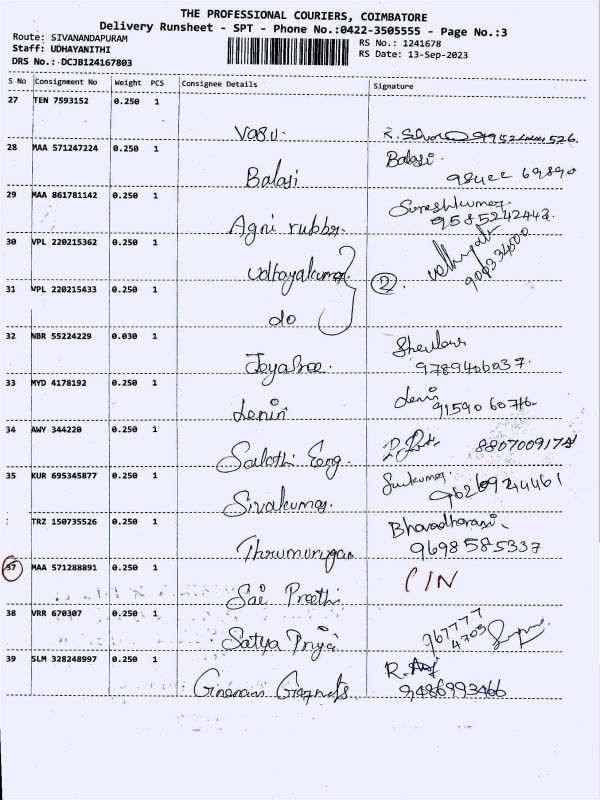 THE PROFESSIONAL COURIERS, COIMBATORE
Delivery Runsheet - SPT - Phone No.:0422-3505555 - Page No.:3
Route: SIVANANDAPURAM
Staff: UDHAYANITHI
DRS No.: DCJB124167803
RS No.: 1241678
RS Date: 13-Sep-2023
S No Consignment No Weight PCS Consignee Details Signature
27 TEN 7593152 0.250 1
Vasu.
28 MAA 571247224 0.250 1 Balaji.
Balaji 98422 69890
29 MAA 861781142 0.250 1 Sureshkumar
Agni rubber 9585242442
30 VPL 220215362 0.250 1
Udhayakumar 2
31 VPL 220215433 0.250 1
do
32 NBR 55224229 0.030 1
Jeyasree. 9789406037.
33 MYD 4178192 0.250 1 Lenin
Lenin 91590 60716.
34 AWY 344220 0.250 1
Sakthi Eeng. 8807009174
35 KUR 695345877 0.250 1
Sivakumar 9626924461
TRZ 150735526 0.250 1 Bharadharani.
Thirumurugan 9698585337
37 MAA 571288891 0.250 1 PIN
Sai Preethi
38 VRR 670307 0.250 1 967777
Satya Priya 4703
39 SLM 328248997 0.250 1 R.
Gnanam Garments 9486993466